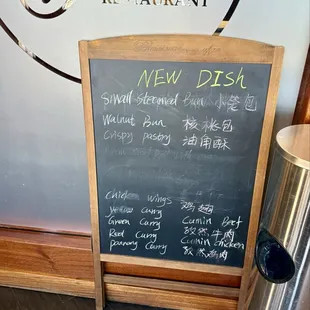 RESTAURANT
NEW DISh
Small Steamed Bun 小笼包
Walnut Bun 核桃包
Crispy pastry 油角酥
Chicken Wings 鸡翅
Yellow Curry
Green Curry Cumin Beef
Red Curry 孜然牛肉
Curry Cumin chicken
孜然鸡肉